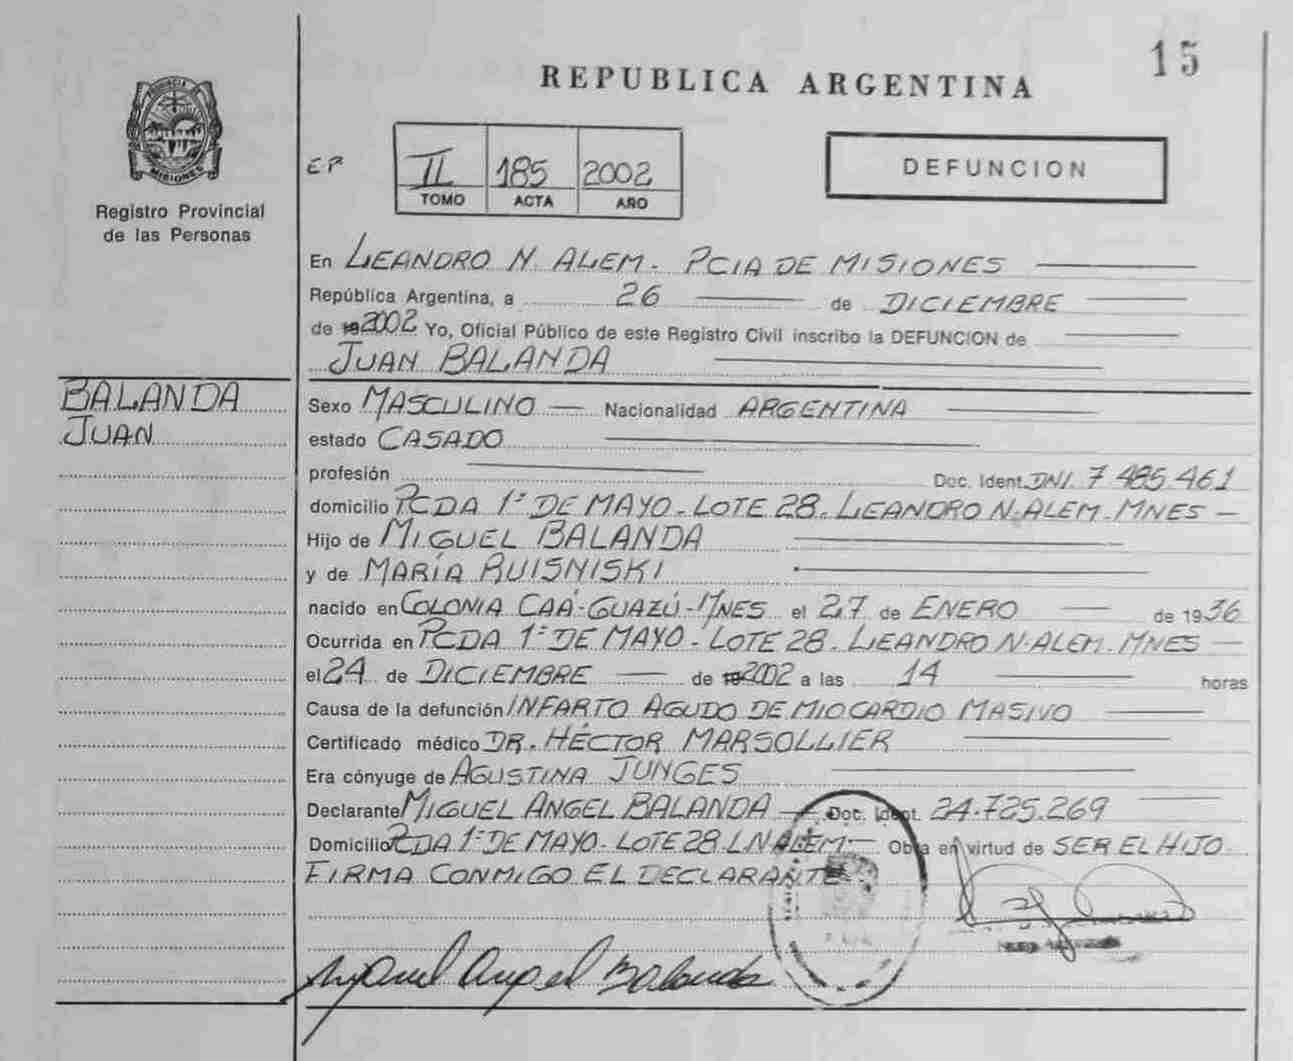 15
REPUBLICA ARGENTINA
PROVINCIA DE
MISIONES
Registro Provincial
de las Personas
EP
II 185 2002
TOMO ACTA AÑO
DEFUNCION
En LEANDRO N. ALEM. PCIA DE MISIONES
República Argentina, a 26 de DICIEMBRE
de 19 2002 Yo, Oficial Público de este Registro Civil inscribo la DEFUNCION de
JUAN BALANDA
BALANDA
JUAN
Sexo MASCULINO Nacionalidad ARGENTINA
estado CASADO
profesión Doc. Ident. DNI. 7 485.461
domicilio PCDA 1º DE MAYO - LOTE 28. LEANDRO N. ALEM. MNES
Hijo de MIGUEL BALANDA
y de MARÍA RUISNISKI
nacido en COLONIA CAÁ-GUAZÚ-MNES el 27 de ENERO de 1936
Ocurrida en PCDA 1º DE MAYO - LOTE 28. LEANDRO N. ALEM. MNES
el 24 de DICIEMBRE de 19 2002 a las 14 horas
Causa de la defunción INFARTO AGUDO DE MIOCARDIO MASIVO
Certificado médico DR. HÉCTOR MARSOLLIER
Era cónyuge de AGUSTINA JUNGES
Declarante MIGUEL ANGEL BALANDA Doc. Ident. 24.725.269
Domicilio PCDA 1º DE MAYO - LOTE 28 L N ALEM Obra en virtud de SER EL HIJO.
FIRMA CONMIGO EL DECLARANTE.
Miguel Angel Balanda